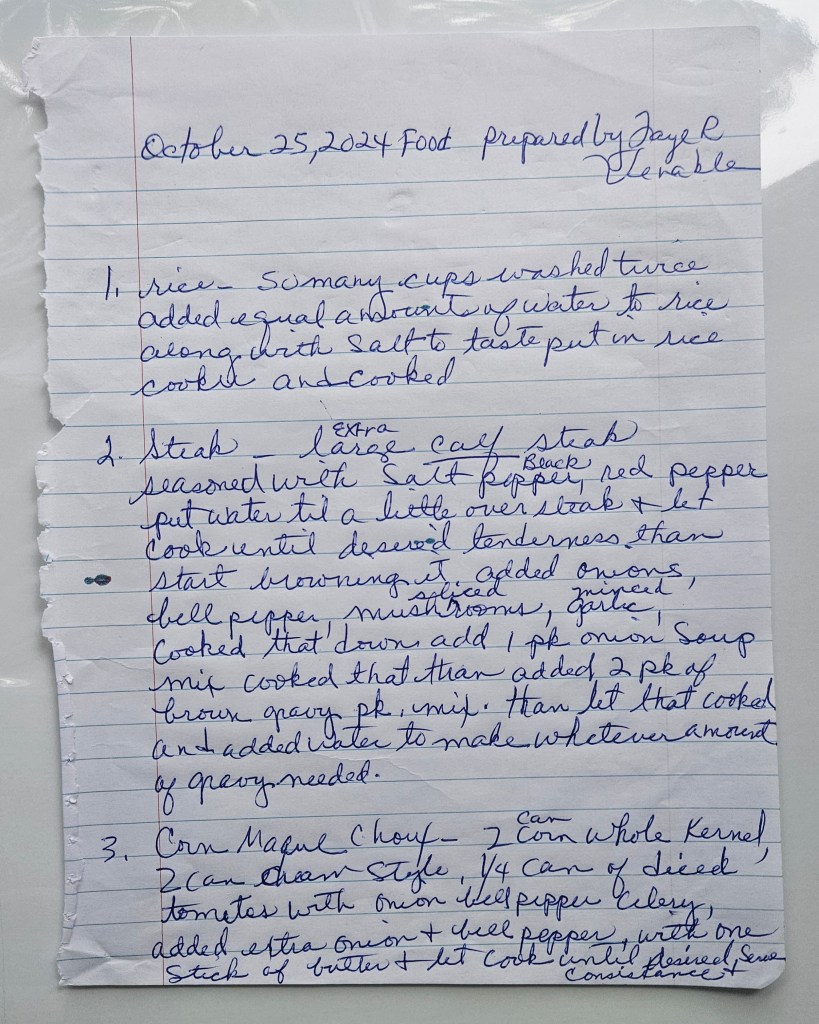 October 25, 2024 Food prepared by Faye R
Venable
1. rice - so many cups washed twice
added equal amounts of water to rice
along with salt to taste put in rice
cooker and cooked
2. Steak - Extra large calf steak
seasoned with Salt Black pepper, red pepper
put water til a little over steak + let
cook until desired tenderness than
start browning it. added onions,
bell pepper, sliced mushrooms, minced garlic,
Cooked that down add 1 pk onion Soup
mix cooked that than added 2 pk of
brown gravy pk. mix. than let that cooked
and added water to make whatever amount
of gravy needed.
3. Corn Maque Chouf - 2 can Corn whole Kernel,
2 can cream style, 1/4 can of diced
tometes with onion bell pepper celery,
added extra onion + bell pepper, with one
Stick of butter + let cook until desired consistance + Serve